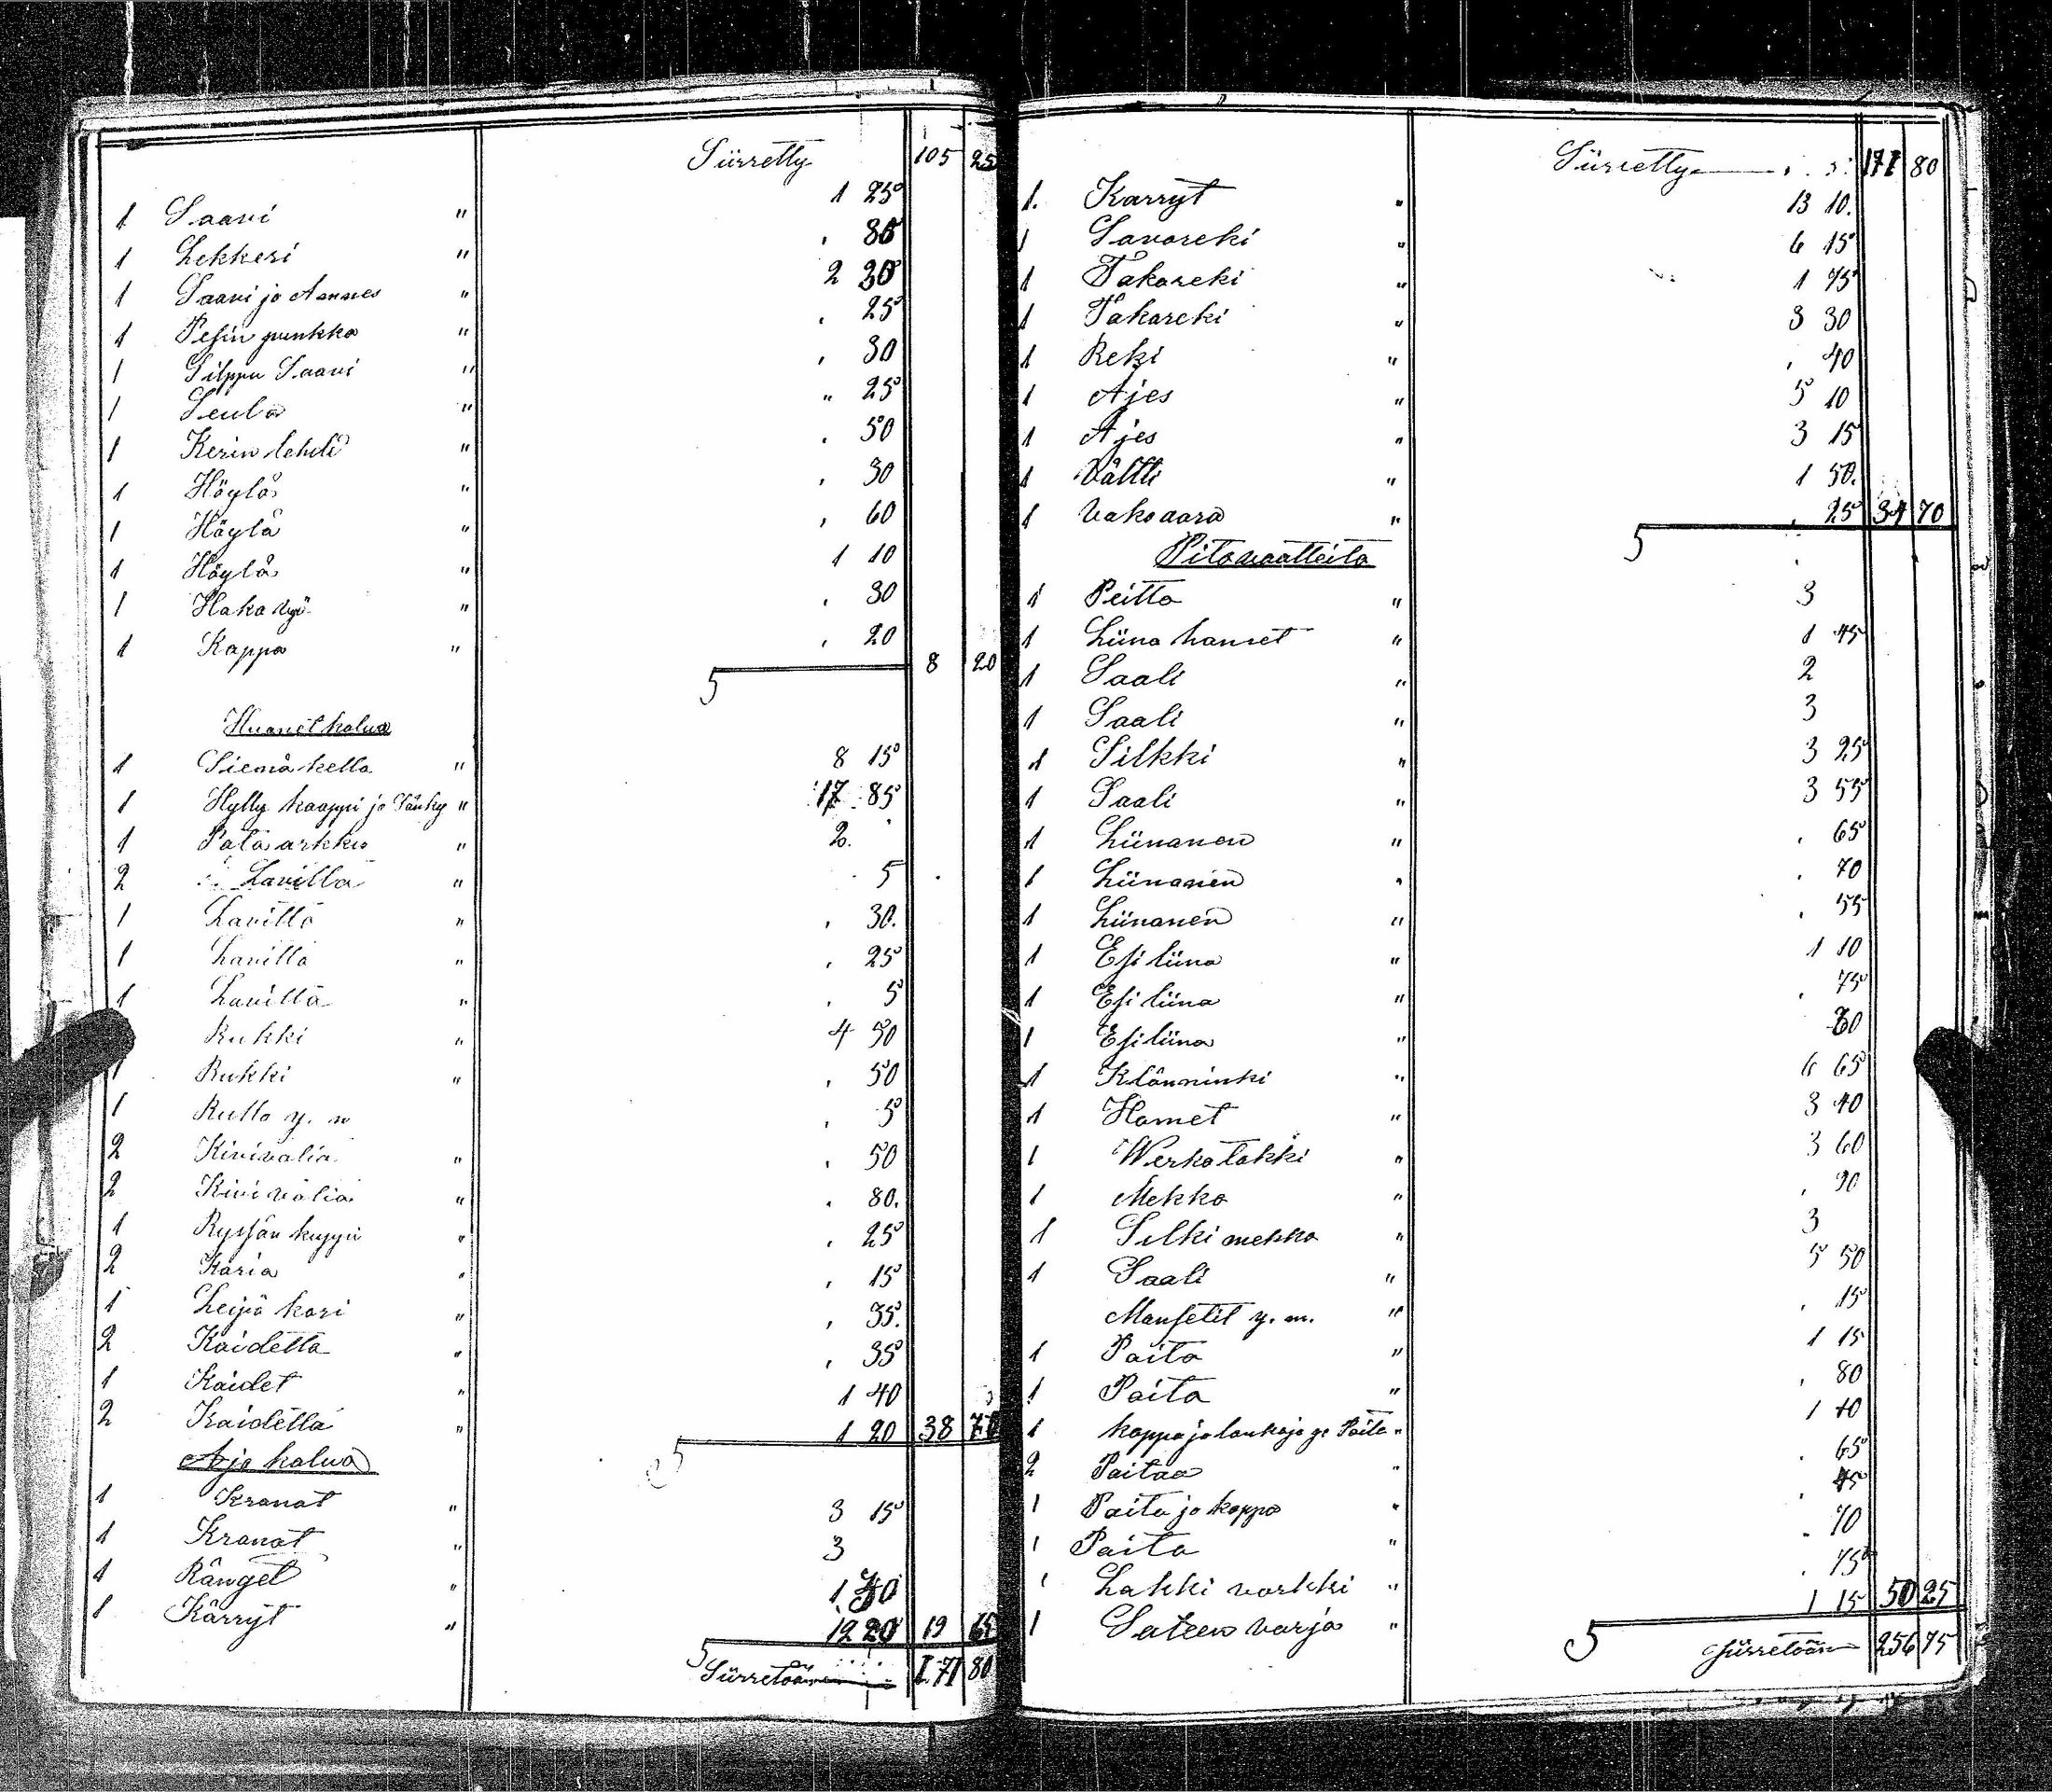 Siirretty 105 25
1 Saavi " 1 25
1 Lekkeri " . 85
1 Saavi ja Ammes " 2 20
1 Pesin punkka " . 25
1 Silppu Saavi " . 30
1 Seula " " 25
1 Kerin lehdet " . 50
1 Höylä " . 30
1 Höylä " . 60
1 Höylä " 1 10
1 Haka vyö " . 30
1 Kappa " . 20 8 20
Huonet kalua
1 Seinä kello " 8 15
1 Hylly kaappi ja Sänky " 17 85
1 Pata arkku " 2.
2 Lavitta " 5
1 Lavitta " . 30.
1 Lavitta " . 25
1 Lavitta " . 5
Rukki " 4 50
1 Rukki " . 50
1 Rullo y. m . 5
2 Kirivalia " . 50
2 Kirivalia " . 80.
1 Ryssän kuppi " . 25
2 Karia " . 15
1 Leipä kori " . 35.
2 Kaidetta " . 35
1 Kaidet " 1 40
2 Kaidetta " 1 20 38 70
Ajo kalua
1 Kranat " 3 15
1 Kranat " 3
1 Länget " 1 30
1 Kärryt " 12 20 19 65
Siirretään 171 80
Siirretty 171 80
1. Karryt " 13 10.
1 Savoreki " 6 15
1 Takareki " 1 75
1 Takareki " 3 30
1 Reki " . 40
1 Ajes " 5 10
1 Ajes " 3 15
1 Valtti " 1 50.
1 Vakoaara " . 25 34 70
Pitovaatteita
1 Peitto " 3
1 Liina hamet " 1 45
1 Saali " 2
1 Saali " 3
1 Silkki " 3 25
1 Saali " 3 55
1 Liinanen " . 65
1 Liinanen " . 70
1 Liinanen " . 55
1 Esi liina " 1 10
1 Esi liina " . 75
1 Esi liina " 80
1 Klänninki " 6 65
1 Hamet " 3 40
1 Werka takki " 3 60
1 Mekko " . 90
1 Silki mekko " 3
1 Saali " 5 50
Mansetit y. m. " . 15
1 Paita " 1 15
1 Paita " . 80
1 kappa ja Paita " 1 10
2 Paitaa " . 65
1 Paita ja kappa " . 45
1 Paita " . 70
1 Lakki varkki " . 75
1 Sateen varja " 1 15 50 25
Siirretään 256 75